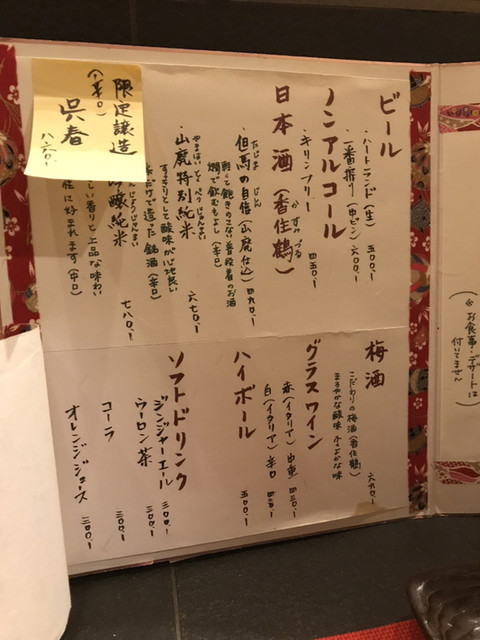 ビール
・ハートランド(生) 五〇〇.-
・一番搾り(中ビン) 六〇〇.-
ノンアルコール
・キリンフリー 四五〇.-
日本酒(香住鶴)
かすみつる
・但馬の自慢(山廃仕込) 四九〇.-
飲む飽きのこない普段着のお酒
燗で飲むもよし(辛口)
・山廃特別純米 六七〇.-
やまはい とくべつ じゅんまい
すっきりとして酸味が心地良い
米だけで造った銘酒(辛口)
吟醸純米 七八〇.-
しい香りと上品な味わい
性に好まれます(中口)
限定醸造
(小辛口)
呉春
八六〇.-
梅酒 六九〇.-
こだわりの梅酒(香住鶴)
まろやかな酸味 さわやかな味
グラスワイン
赤(イタリア)中重 四三〇.-
白(イタリア)辛口 四三〇.-
ハイボール 五〇〇.-
ソフトドリンク
ジンジャーエール 三〇〇.-
ウーロン茶 三〇〇.-
コーラ 三〇〇.-
オレンジジュース 三〇〇.-
(※お食事・デザートは
付いてません)